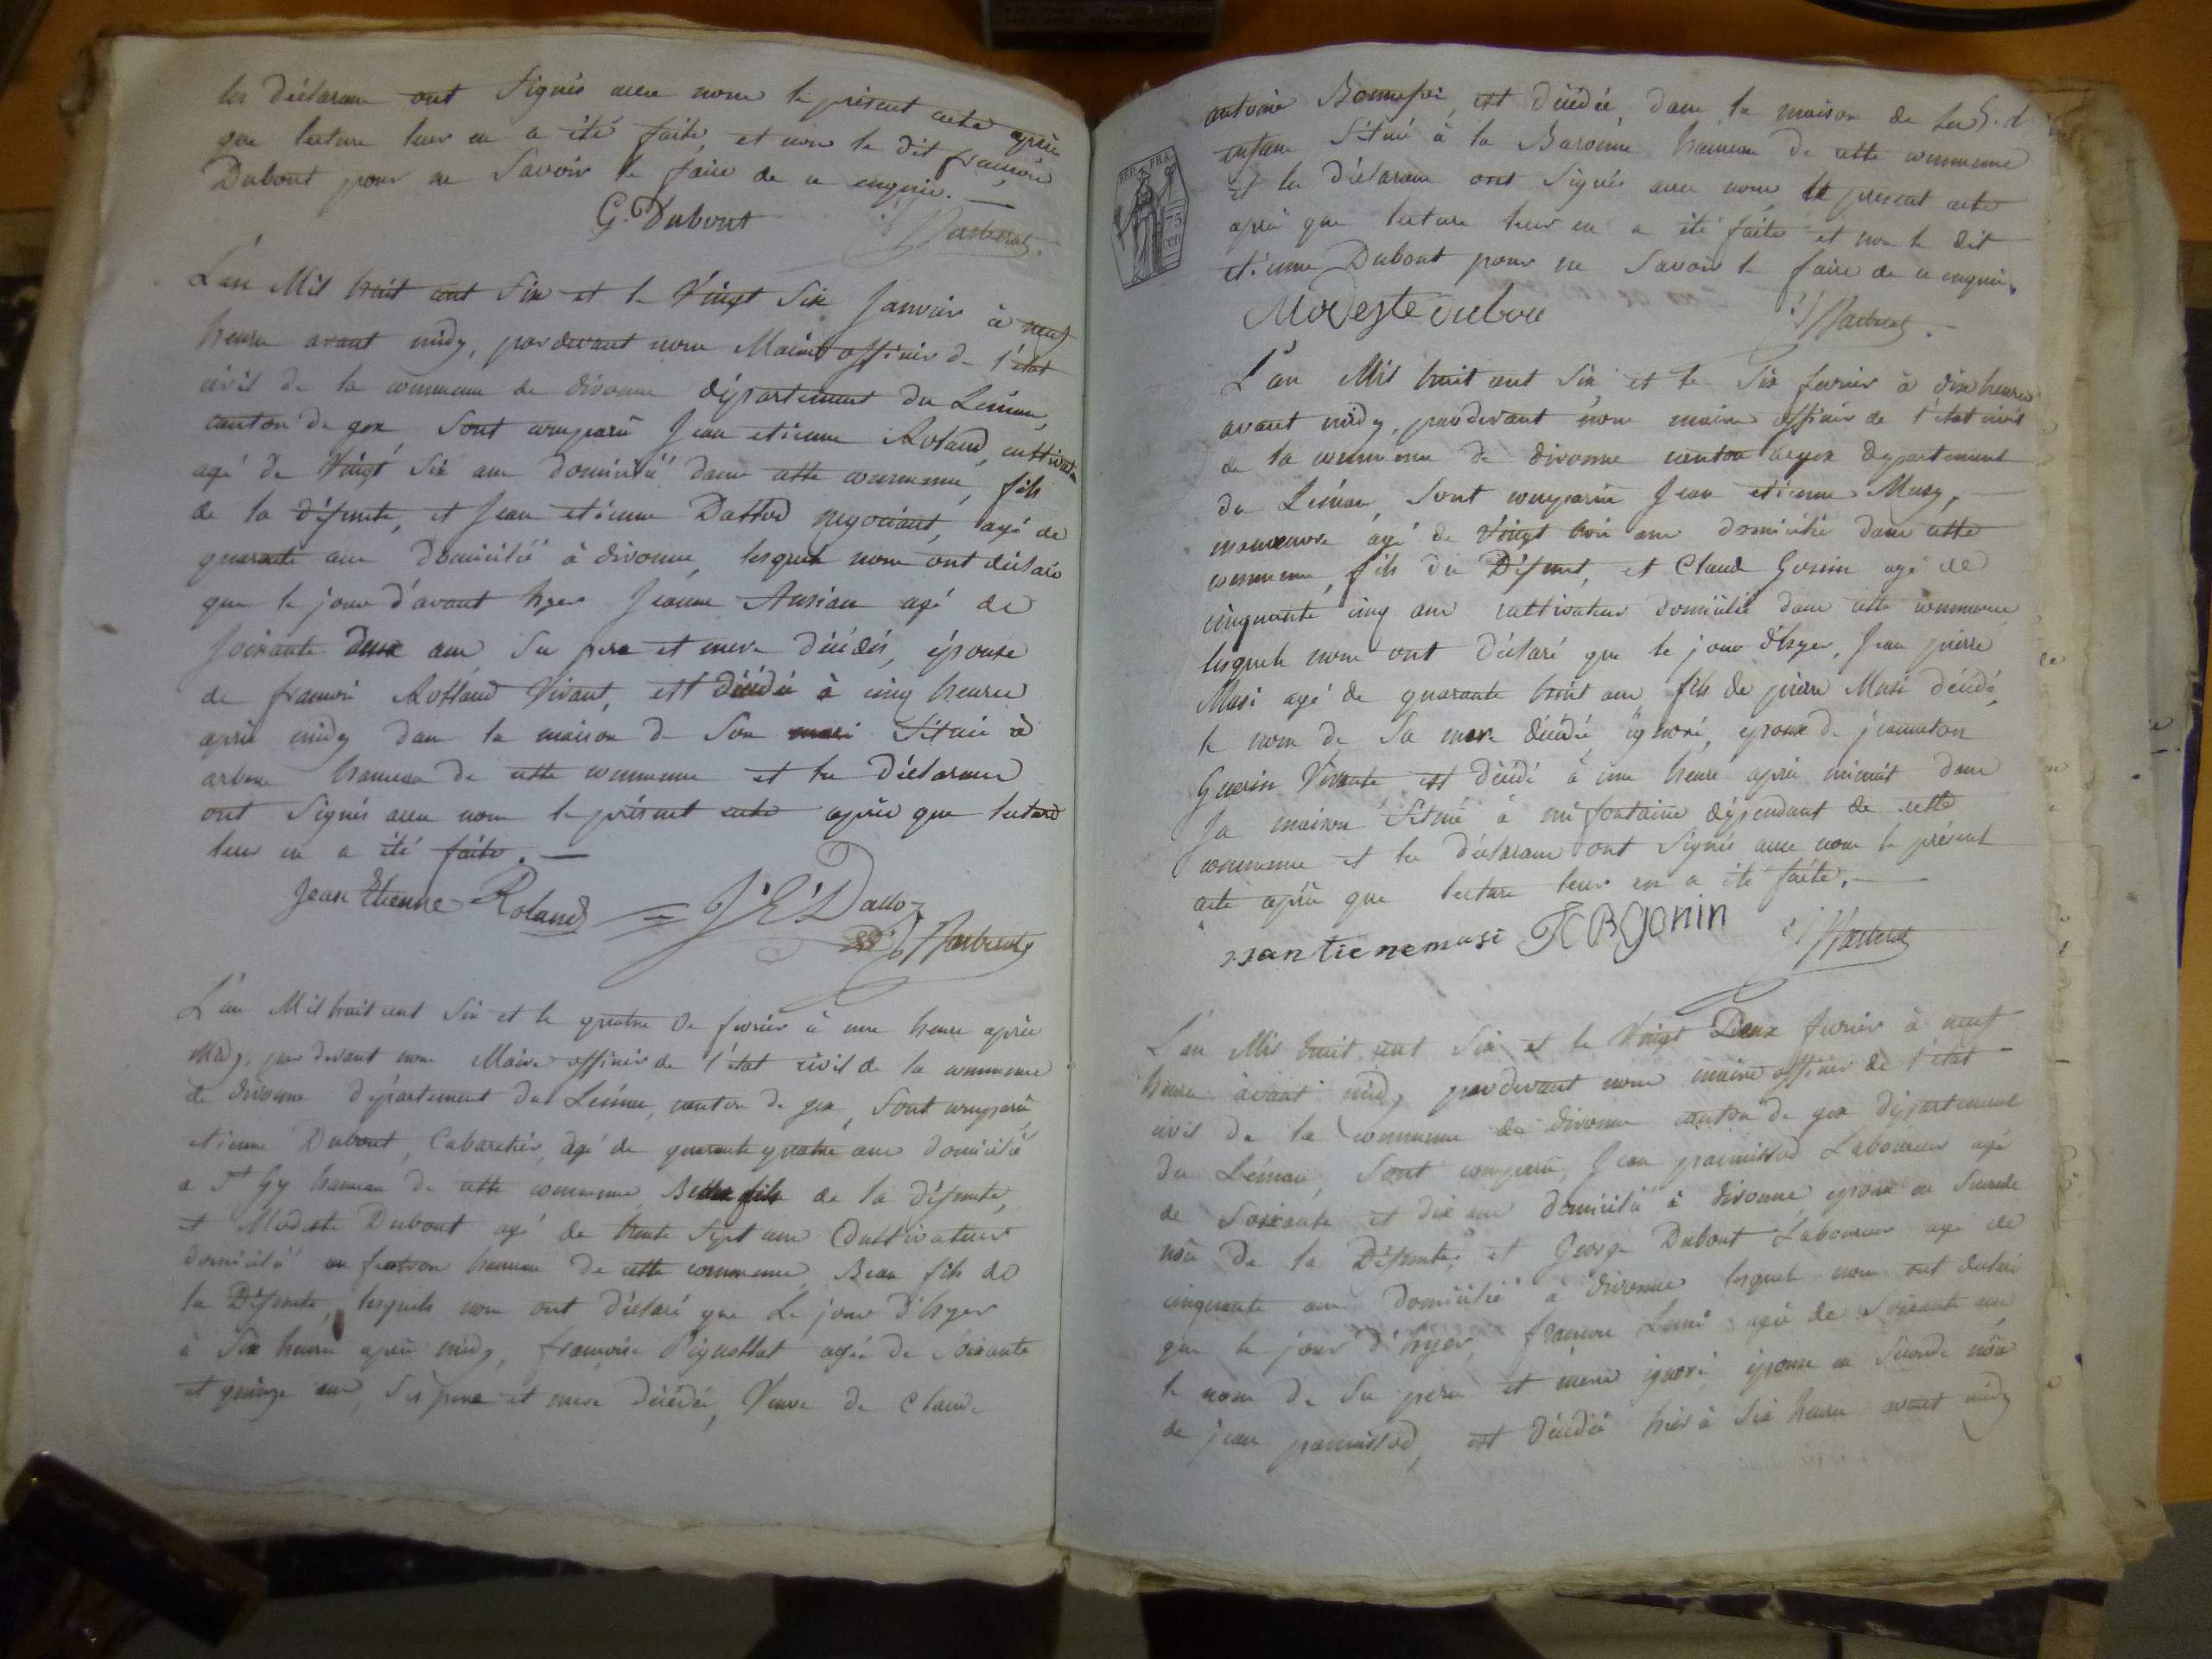 les déclarans ont Signés avec nous le présent acte après
que lecture leur en a été faite, et non le dit françois
Dubout pour ne Savoir le faire de ce enquis.
G. Dubout
L'an Mil huit cent Six et le Vingt Six Janvier à neuf
heures avant midy, pardevant nous Maire officier de l'état
civil de la commune de divonne département du Léman,
canton de gex, Sont comparus Jean etienne Roland, cultivateur
agé de Vingt Six ans domicilié dans cette commune, fils
de la défunte, et Jean etienne Dalloz negociant, agé de
quarante ans domicilié à divonne, lesquels nous ont déclaré
que le jour d'avant hyer Jeanne agé de
soixante deux ans, Ses pere et mere décédés, épouse
de francois Rolland Vivant, est décédée à cinq heures
après midy dans la maison de Son mari Située à
arbere hameau de cette commune et les déclarans
ont Signés avec nous le présent acte après que lecture
leur en a été faite.
Jean Etienne Roland J. E. Dalloz
L'an Mil huit cent Six et le quatre de fevrier à une heure après
midy, par devant nous Maire officier de l'état civil de la commune
de divonne département du Léman, canton de gex, Sont comparus
etienne Dubout, Cabaretier, agé de quarante quatre ans domicilié
a St Gy hameau de cette commune, Beau fils de la défunte,
et Modeste Dubout agé de trente Sept ans Cultivateur
domicilié au hameau de cette commune, Beau fils de
la Défunte, lesquels nous ont déclaré que Le jour d'hyer
à Six heures après midy, francoise agée de Soixante
et quinze ans, Ses pere et mere décédés, Veuve de Claude
antoine Bonnefoi, est décédée, dans la maison de Ses S. d
enfans Située à la hameau de cette commune
et les déclarans ont Signés avec nous le present acte
après que lecture leur en a été faite et non le dit
etienne Dubout pour ne Savoir le faire de ce enquis.
REP. FRA.
75
cen
Modeste dubou
L'an Mil huit cent Six et le Six fevrier à dix heures
avant midy, pardevant nous maire officier de l'état civil
de la commune de divonne canton de gex departement
du Léman, Sont comparus Jean etienne Musy,
manoeuvre agé de Vingt trois ans domicilié dans cette
commune, fils du Défunt, et Claude Gonin agé de
cinquante cinq ans cultivateur domicilié dans cette commune
lesquels nous ont déclaré que le jour d'hyer, Jean pierre
Musi agé de quarante huit ans, fils de pierre Musi décédé,
le nom de Sa mere décédée ignoré, epoux de jeanneton
Guerin Vivante est décédé à une heure après minuit dans
Sa maison Située à mi fontaine dépendant de cette
commune et les déclarans ont Signés avec nous le présent
acte après que lecture leur en a été faite.
jean tienemusi Gonin
L'an Mil huit cent Six et le Vingt Deux fevrier à neuf
heures avant midy pardevant nous maire officier de l'état
civil de la commune de divonne canton de gex département
du Léman, Sont comparus, Jean Laboureur agé
de Soixante et dix ans domicilié à divonne époux en Seconde
nôce de la Défunte, et George Dubout Laboureur agé de
cinquante ans domicilié à divonne lesquels nous ont declaré
que le jour d'hyer, agée de Soixante ans
le nom de Ses pere et mere ignoré épouse en Seconde nôce
de jean est décédée hier à Six heures avant midy